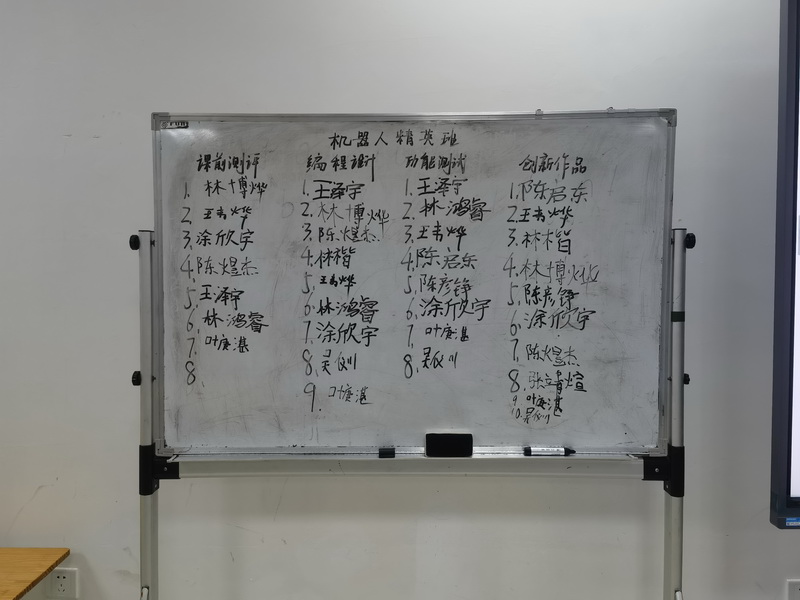 机器人精英班
课前测评
1. 林博烨
2. 王韦烨
3. 涂欣宇
4. 陈煜杰
5. 王泽宇
6. 林鸿睿
7. 叶庭湛
8.
编程设计
1. 王泽宇
2. 林博烨
3. 陈煜杰
4. 林楷
5. 王韦烨
6. 林鸿睿
7. 涂欣宇
8. 吴仪川
9. 叶庭湛
功能测试
1. 王泽宇
2. 林鸿睿
3. 王韦烨
4. 陈启东
5. 陈彦铮
6. 涂欣宇
7. 叶庭湛
8. 吴仪川
创新作品
1. 陈启东
2. 王韦烨
3. 林楷
4. 林博烨
5. 陈彦铮
6. 涂欣宇
7. 陈煜杰
8. 张煊
9. 叶庭湛
10. 吴仪川